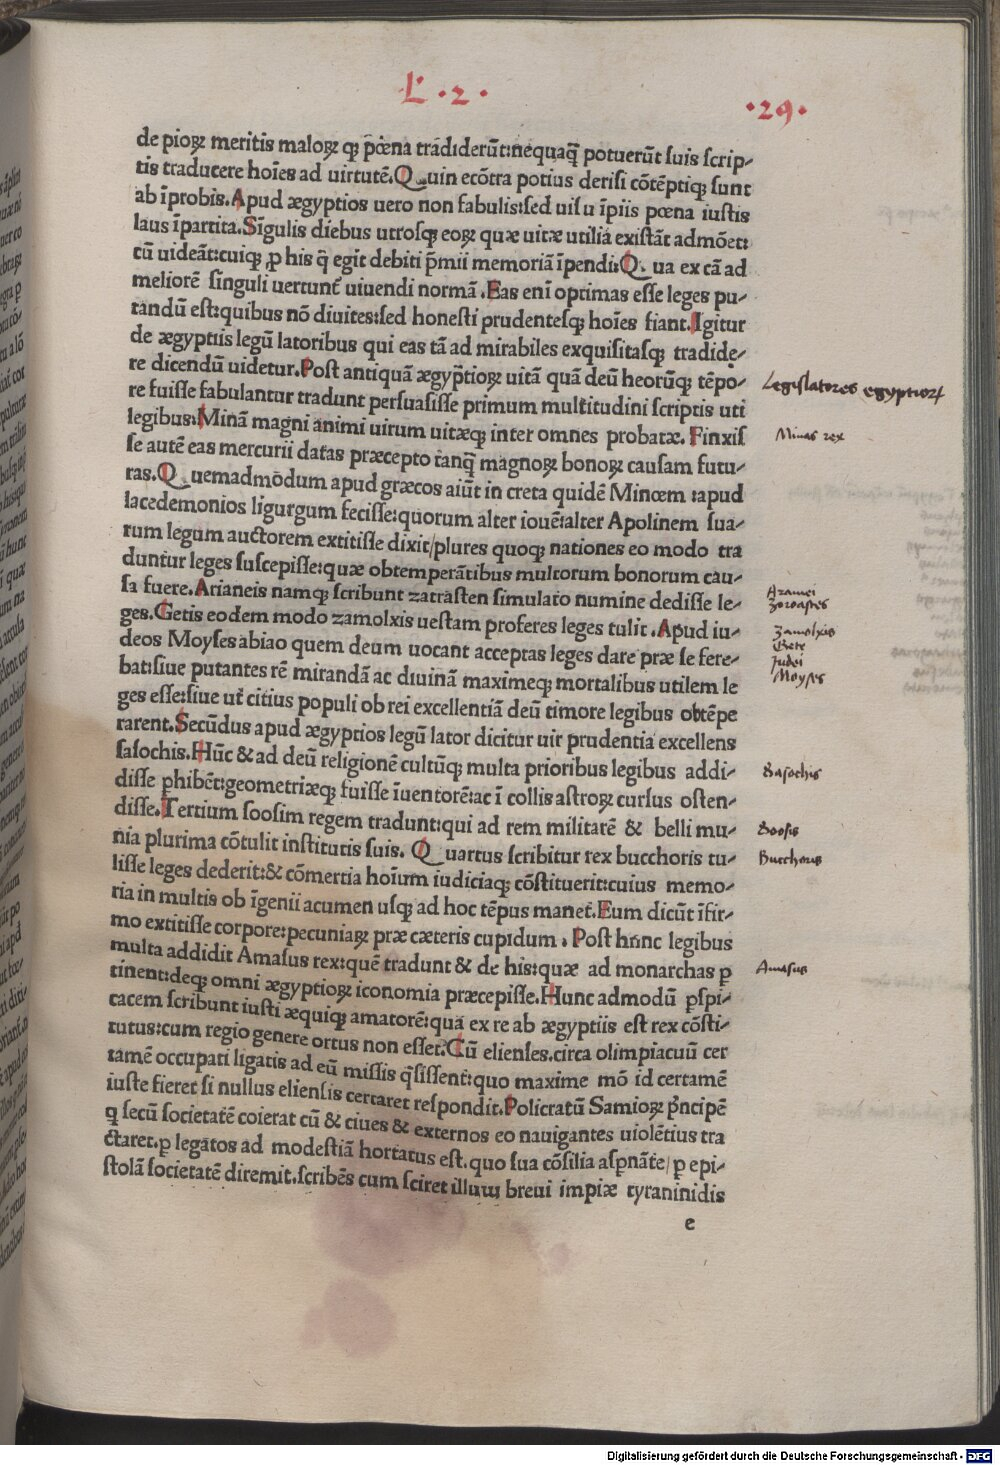 L · 2 ·
· 29 ·
de pioꝝ meritis maloꝝ qꝫ pœna tradiderūt:nequaq̄ potuerūt suis scrip-
tis traducere hoīes ad uirtutē. Quin ecōtra potius derisi cōtēptiqꝫ sunt
ab īprobis. Apud ægyptios uero non fabulis:sed uisu īpiis pœna iustis
laus īpartita. Sīgulis diebus utrosqꝫ eoꝝ quæ uitæ utilia existāt admōet:
cū uideāt:cuiqꝫ ꝓ his q̄ egit debiti p̄mii memoriā īpendi: Qua ex cā ad
meliorē singuli uertunt̄ uiuendi normā. Eas enī optimas esse leges pu-
tandū est:quibus nō diuites:sed honesti prudentesqꝫ hoīes fiant. Igitur
de ægyptiis legū latoribus qui eas tā ad mirabiles exquisitasqꝫ tradide-
re dicendū uidetur. Post antiquā ægyptioꝝ uitā quā deū heorūqꝫ tēpo-
re fuisse fabulantur tradunt persuasisse primum multitudini scriptis uti
legibus: Minā magni animi uirum uitæqꝫ inter omnes probatæ. Finxis
se autē eas mercurii datas præcepto tanq̄ magnoꝝ bonoꝝ causam futu-
ras. Quemadmodum apud græcos aiūt in creta quidē Minœm :apud
lacedemonios ligurgum fecisse:quorum alter iouē:alter Apolinem sua-
rum legum auctorem extitisse dixit/plures quoqꝫ nationes eo modo tra
duntur leges suscepisse:quæ obtemperātibus multorum bonorum cau-
sa fuere. Arianeis namqꝫ scribunt zatrasten simulato numine dedisse le-
ges. Getis eodem modo zamolxis uestam proferes leges tulit. Apud iu-
deos Moyses abiao quem deum uocant acceptas leges dare præ se fere-
bat:siue putantes rē mirandā ac diuinā maximeqꝫ mortalibus utilem le
ges esse:siue ut citius populi ob rei excellentiā deū timore legibus obtēpe
rarent. Secūdus apud ægyptios legū lator dicitur uir prudentia excellens
sasochis. Hūc & ad deū religionē cultūqꝫ multa prioribus legibus addi-
disse ꝑhibēt:geometriæqꝫ fuisse īuentorē:ac ī collis astroꝝ cursus osten-
disse. Tertium soosim regem tradunt:qui ad rem militarē & belli mu-
nia plurima cōtulit institutis suis. Quartus scribitur rex bucchoris tu-
lisse leges dederit:& cōmertia hoīum iudiciaqꝫ cōstituerit:cuius memo-
ria in multis ob īgenii acumen usqꝫ ad hoc tēpus manet. Eum dicūt īfir-
mo extitisse corpore:pecuniaꝝ præ cæteris cupidum. Post hunc legibus
multa addidit Amasus rex:quē tradunt & de his:quæ ad monarchas ꝑ
tinent:deqꝫ omni ægyptioꝝ iconomia præcepisse. Hunc admodū ꝑspi-
cacem scribunt iusti æquiqꝫ amatorē:qua ex re ab ægyptiis est rex cōsti-
tutus:cum regio genere ortus non esset. Cū elienses.circa olimpiacuū cer
tamē occupati ligatis ad eū missis q̄sissent:quo maxime mō id certamē
iuste fieret si nullus eliensis certaret respondit. Policratū Samioꝝ p̄ncipē
q̄ secū societatē coierat cū & ciues & externos eo nauigantes uiolētius tra
ctaret.ꝑ legatos ad modestiā hortatus est.quo sua cōsilia aspnāte/ꝑ epi-
stolā societatē diremit.scribēs cum sciret illum breui impiæ tyraninidis
e
Legislatores egyptiorꝝ
Minas rex
Aramei
Zoroastes
Zamolxis
Gete
Judei
Moyses
Sasochis
Soosis
Bucchoris
Amasus
Digitalisierung gefördert durch die Deutsche Forschungsgemeinschaft - DFG